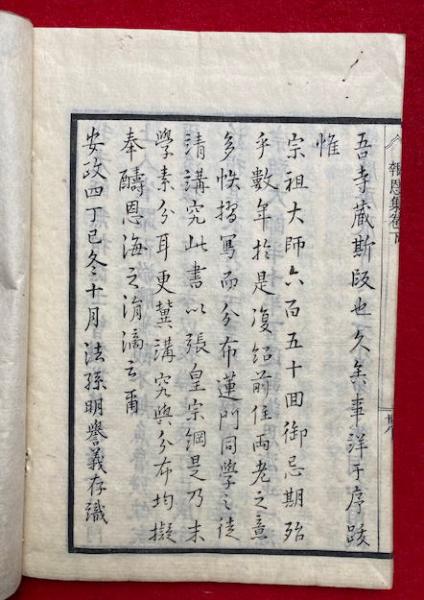 報恩集卷下
吾寺藏斯版也久矣事詳于序跋
惟
宗祖大師六百五十回御忌期殆
乎數年於是復紹前住兩老之意
多帙摺寫而分布蓮門同學之徒
請講究此書以張皇宗綱是乃末
學素分耳更冀講究與分布均擬
奉酬恩海之涓滴云爾
安政四丁巳冬十月 法孫明譽義存識